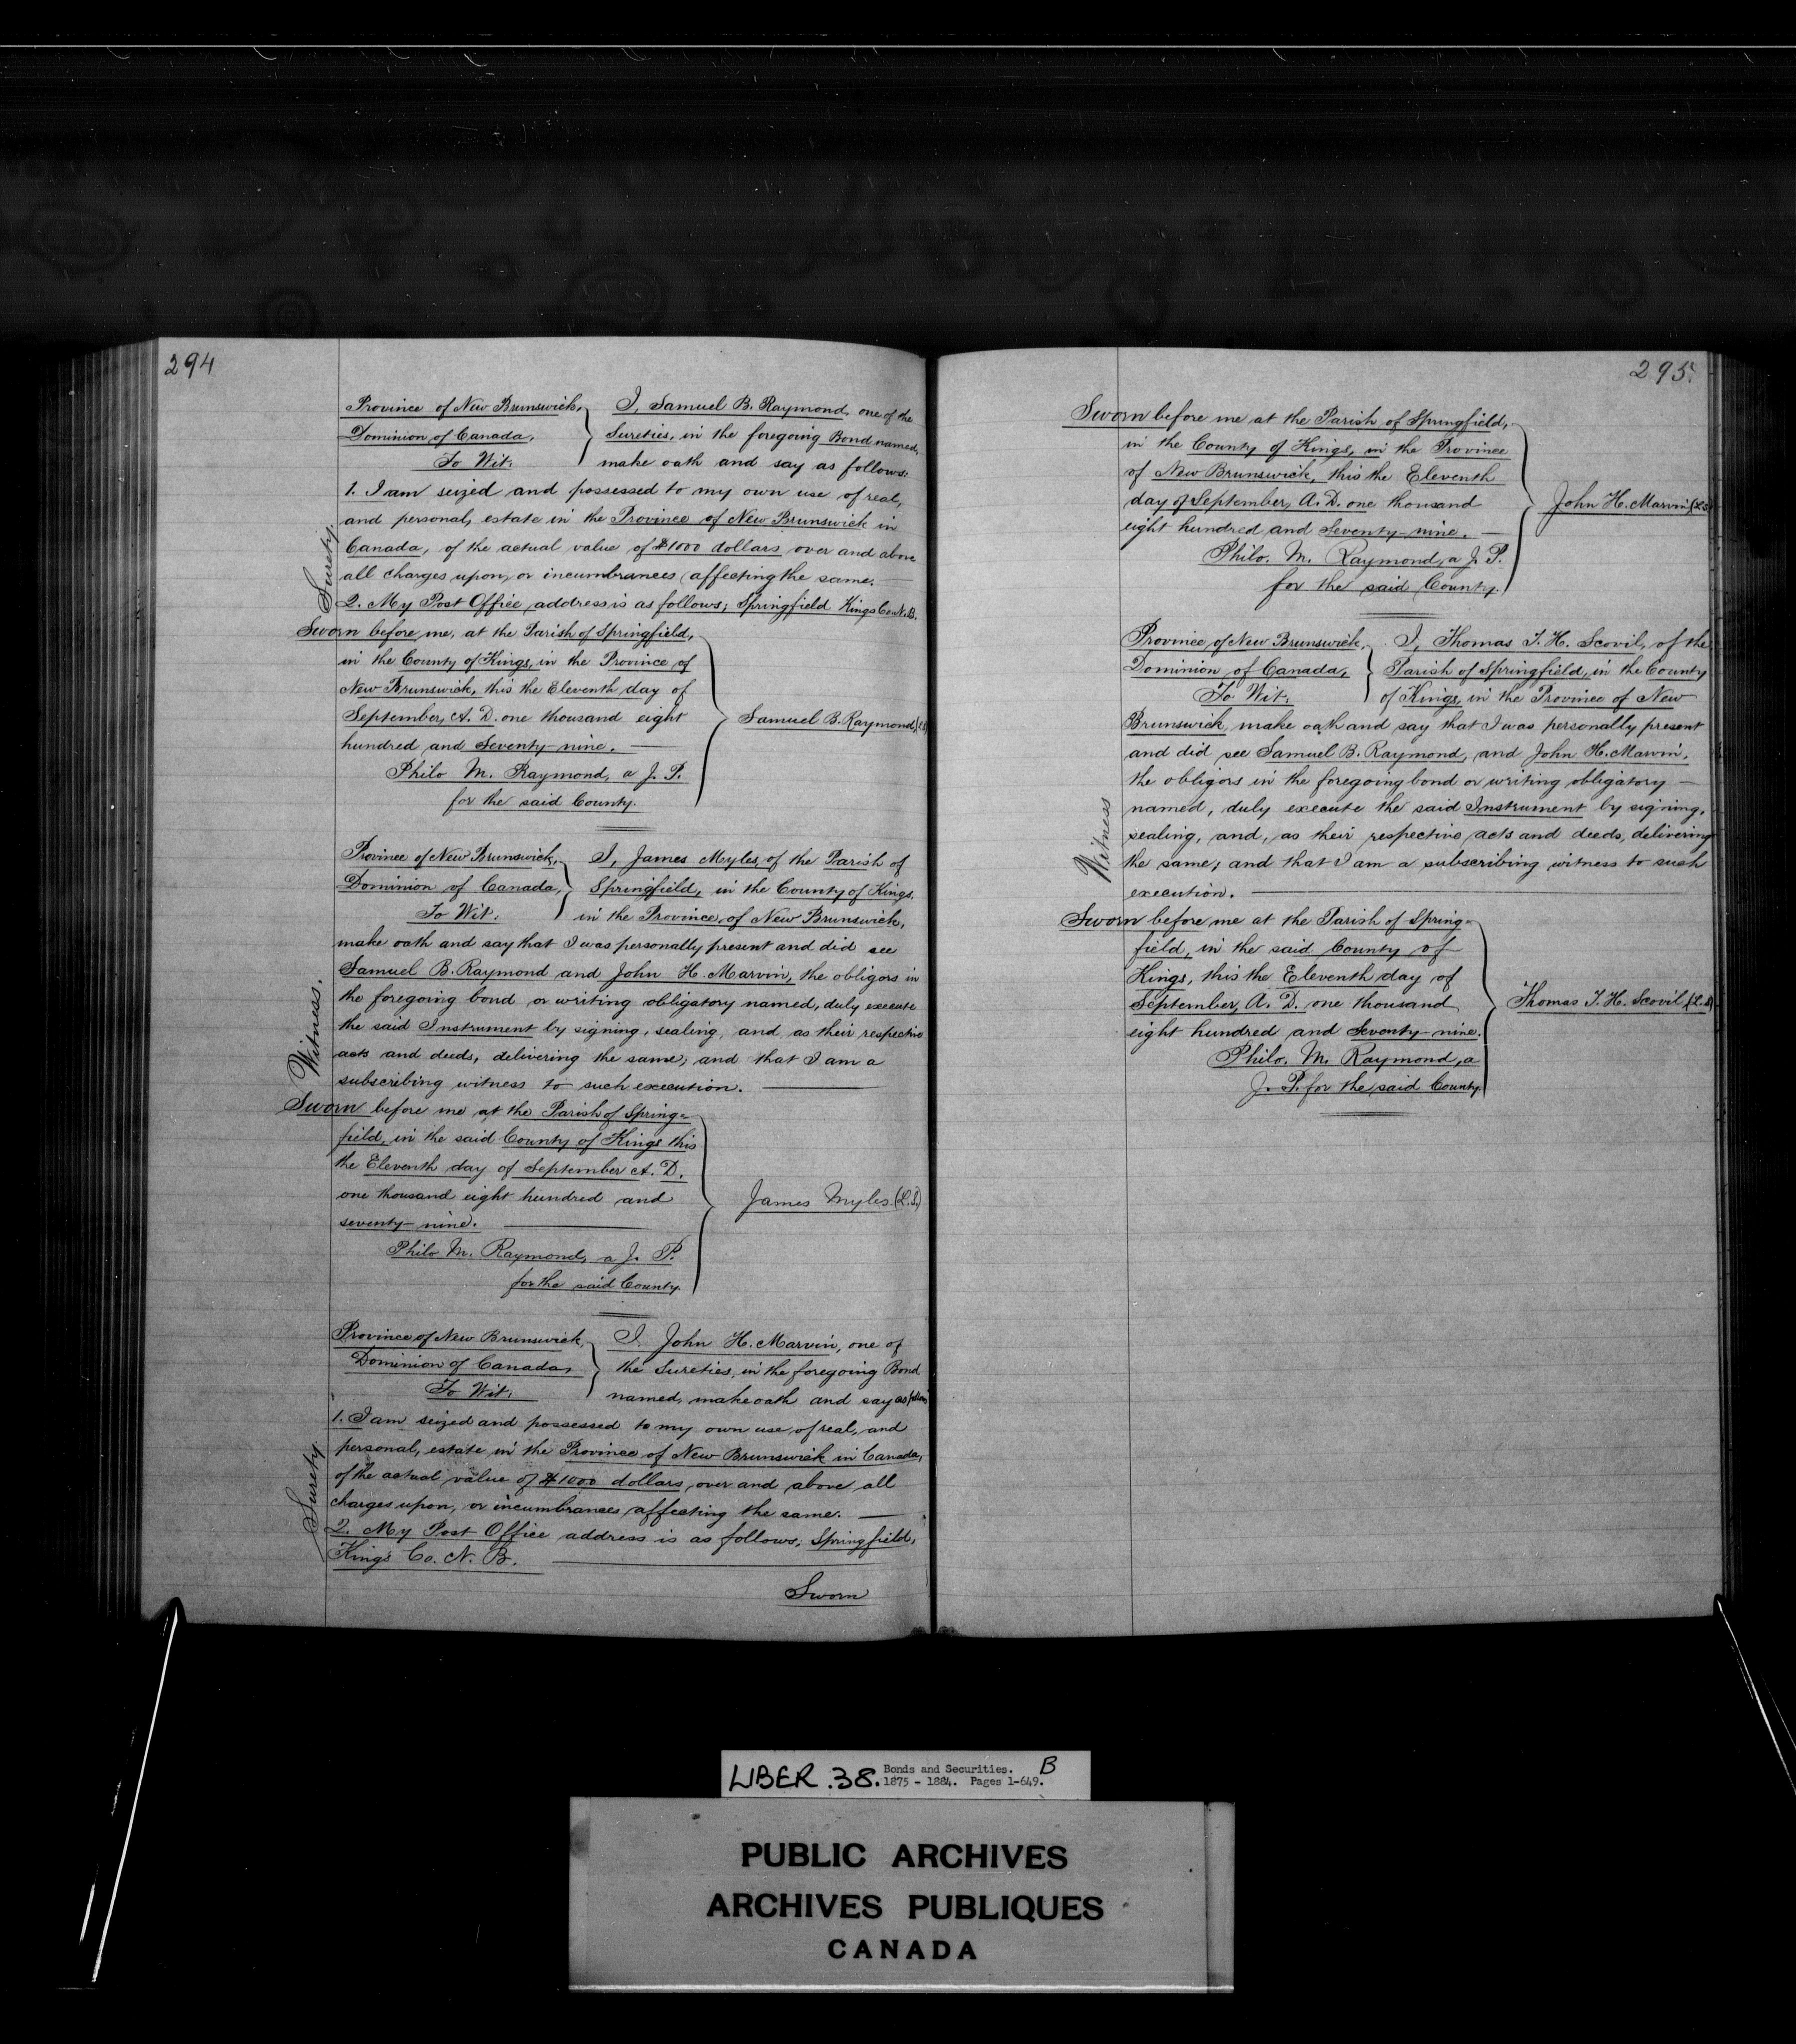 294
Province of New Brunswick, I, Samuel B. Raymond, one of the
Dominion of Canada, Sureties, in the foregoing Bond named,
To Wit: make oath and say as follows:
1. I am seized and possessed to my own use of real,
and personal, estate in the Province of New Brunswick in
Canada, of the actual value of $1000 dollars over and above
all charges upon, or incumbrances affecting the same.
2. My Post Office address is as follows; Springfield Kings Co. N.B.
Surety.
Sworn before me, at the Parish of Springfield,
in the County of Kings, in the Province of
New Brunswick, this the Eleventh day of
September, A. D. one thousand eight
hundred and Seventy-nine.
Philo M. Raymond, a J. P.
for the said County.
Samuel B. Raymond, (L.S)
Province of New Brunswick, I, James Myles, of the Parish of
Dominion of Canada, Springfield, in the County of Kings,
To Wit: in the Province of New Brunswick,
make oath and say that I was personally present and did see
Samuel B. Raymond and John H. Marvin, the obligors in
the foregoing bond or writing obligatory named, duly execute
the said Instrument by signing, sealing, and as their respective
acts and deeds, delivering the same; and that I am a
subscribing witness to such execution.
Witness.
Sworn before me at the Parish of Spring-
field, in the said County of Kings this
the Eleventh day of September A. D.
one thousand eight hundred and
seventy-nine.
Philo M. Raymond, a J. P.
for the said County.
James Myles (L.S.)
Province of New Brunswick, I, John H. Marvin, one of
Dominion of Canada, the Sureties, in the foregoing Bond
To Wit: named, make oath and say as follows
1. I am seized and possessed to my own use, of real, and
personal, estate in the Province of New Brunswick in Canada,
of the actual value of $1000 dollars, over and above all
charges upon, or incumbrances affecting the same.
2. My Post Office address is as follows; Springfield,
Kings Co. N. B.
Surety.
Sworn
295.
Sworn before me at the Parish of Springfield,
in the County of Kings, in the Province
of New Brunswick, this the Eleventh
day of September, A. D. one thousand
eight hundred and Seventy-nine.
Philo. M. Raymond, a J. P.
for the said County.
John H. Marvin, (L.S)
Province of New Brunswick, I, Thomas T. H. Scovil, of the
Dominion of Canada, Parish of Springfield, in the County
To Wit: of Kings, in the Province of New
Brunswick, make oath and say that I was personally present
and did see Samuel B. Raymond, and John H. Marvin,
the obligors in the foregoing bond or writing obligatory
named, duly execute the said Instrument by signing,
sealing, and, as their respective acts and deeds, delivering
the same; and that I am a subscribing witness to such
execution.
Witness
Sworn before me at the Parish of Spring-
field, in the said County of
Kings, this the Eleventh day of
September, A. D. one thousand
eight hundred and Seventy-nine.
Philo. M. Raymond, a
J. P. for the said County.
Thomas T. H. Scovil, (L.S)
LIBER. 38. Bonds and Securities. B
1875 - 1884. Pages 1-649.
PUBLIC ARCHIVES
ARCHIVES PUBLIQUES
CANADA